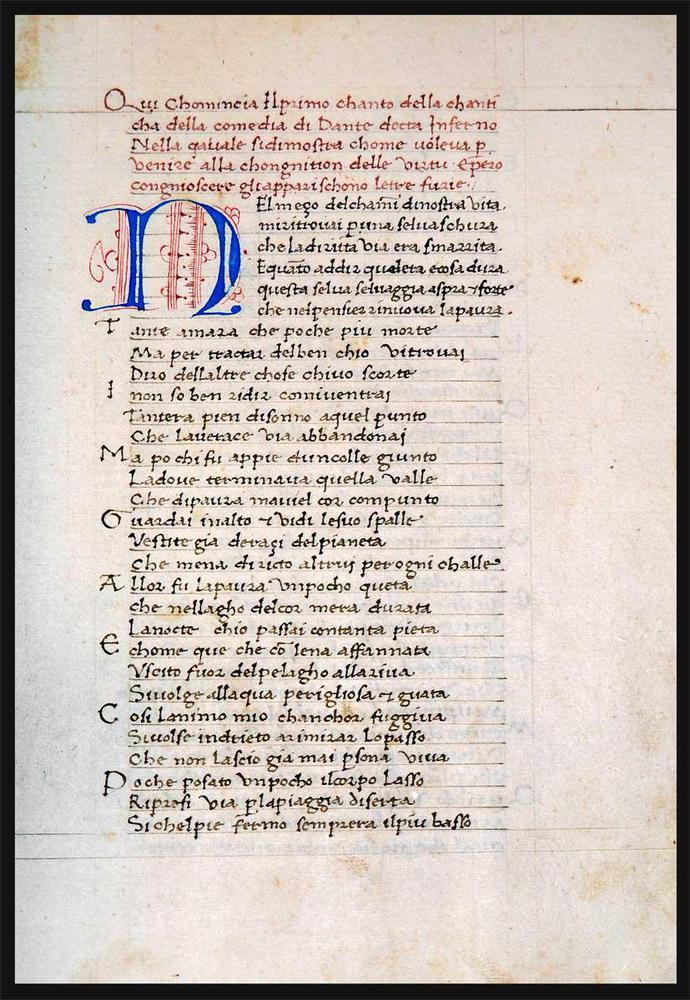 Qui Chomincia Ilprimo chanto della chanti
cha della comedia di Dante decta Inferno
Nella quauale sidimostra chome uoleua p
venire alla chongnition delle virtu · Epero
congnioscere gliapparischono letre furie ·/
NEl mezo delchami dinostra vita ·
miritrouai p una selua schura
che la diricta via era smarrita ·
Equato addir qualera ecosa dura
questa selua seluaggia aspra & forte
che nelpensier rinuova lapaura ·
Tante amara che poche piu morte
Ma per tractar delben chio vitrouai
Diro dellaltre chose chiuo scorte
I non so ben ridir comiuentrai
Tantera pien disonno aquel punto
Che lauerace via abbandonai
Ma po chi fu appie duncolle giunto
Ladoue terminaua quella valle
Che dipaura mauiel cor compunto
Guardai inalto & vidi lesuo spalle
Vestite gia deraçi delpianeta
Che mena diricto altrui perogni challe
Allor fu lapaura vnpocho queta
che nellagho delcor mera durata
Lanocte chio passai contanta pieta
E chome que che cō lena affannata
Vscito fuor delpelagho allariua
Siuolge allaqua perigliosa & guata
Cosi lanimo mio chanchor fuggiua
Siuolse indrieto arimirar lopasso
Che non lascio gia mai psona viua
Poche posato vnpocho ilcorpo lasso
Ripresi via p lapiaggia diserta
Sichelpie fermo semprera ilpiu basso